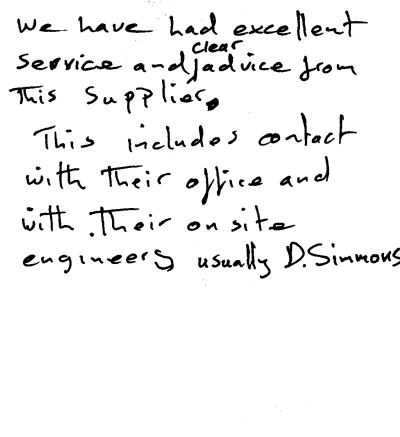 We have had excellent
service and clear advice from
This supplier.
This includes contact
with their office and
with their on site
engineers usually D. Simmons